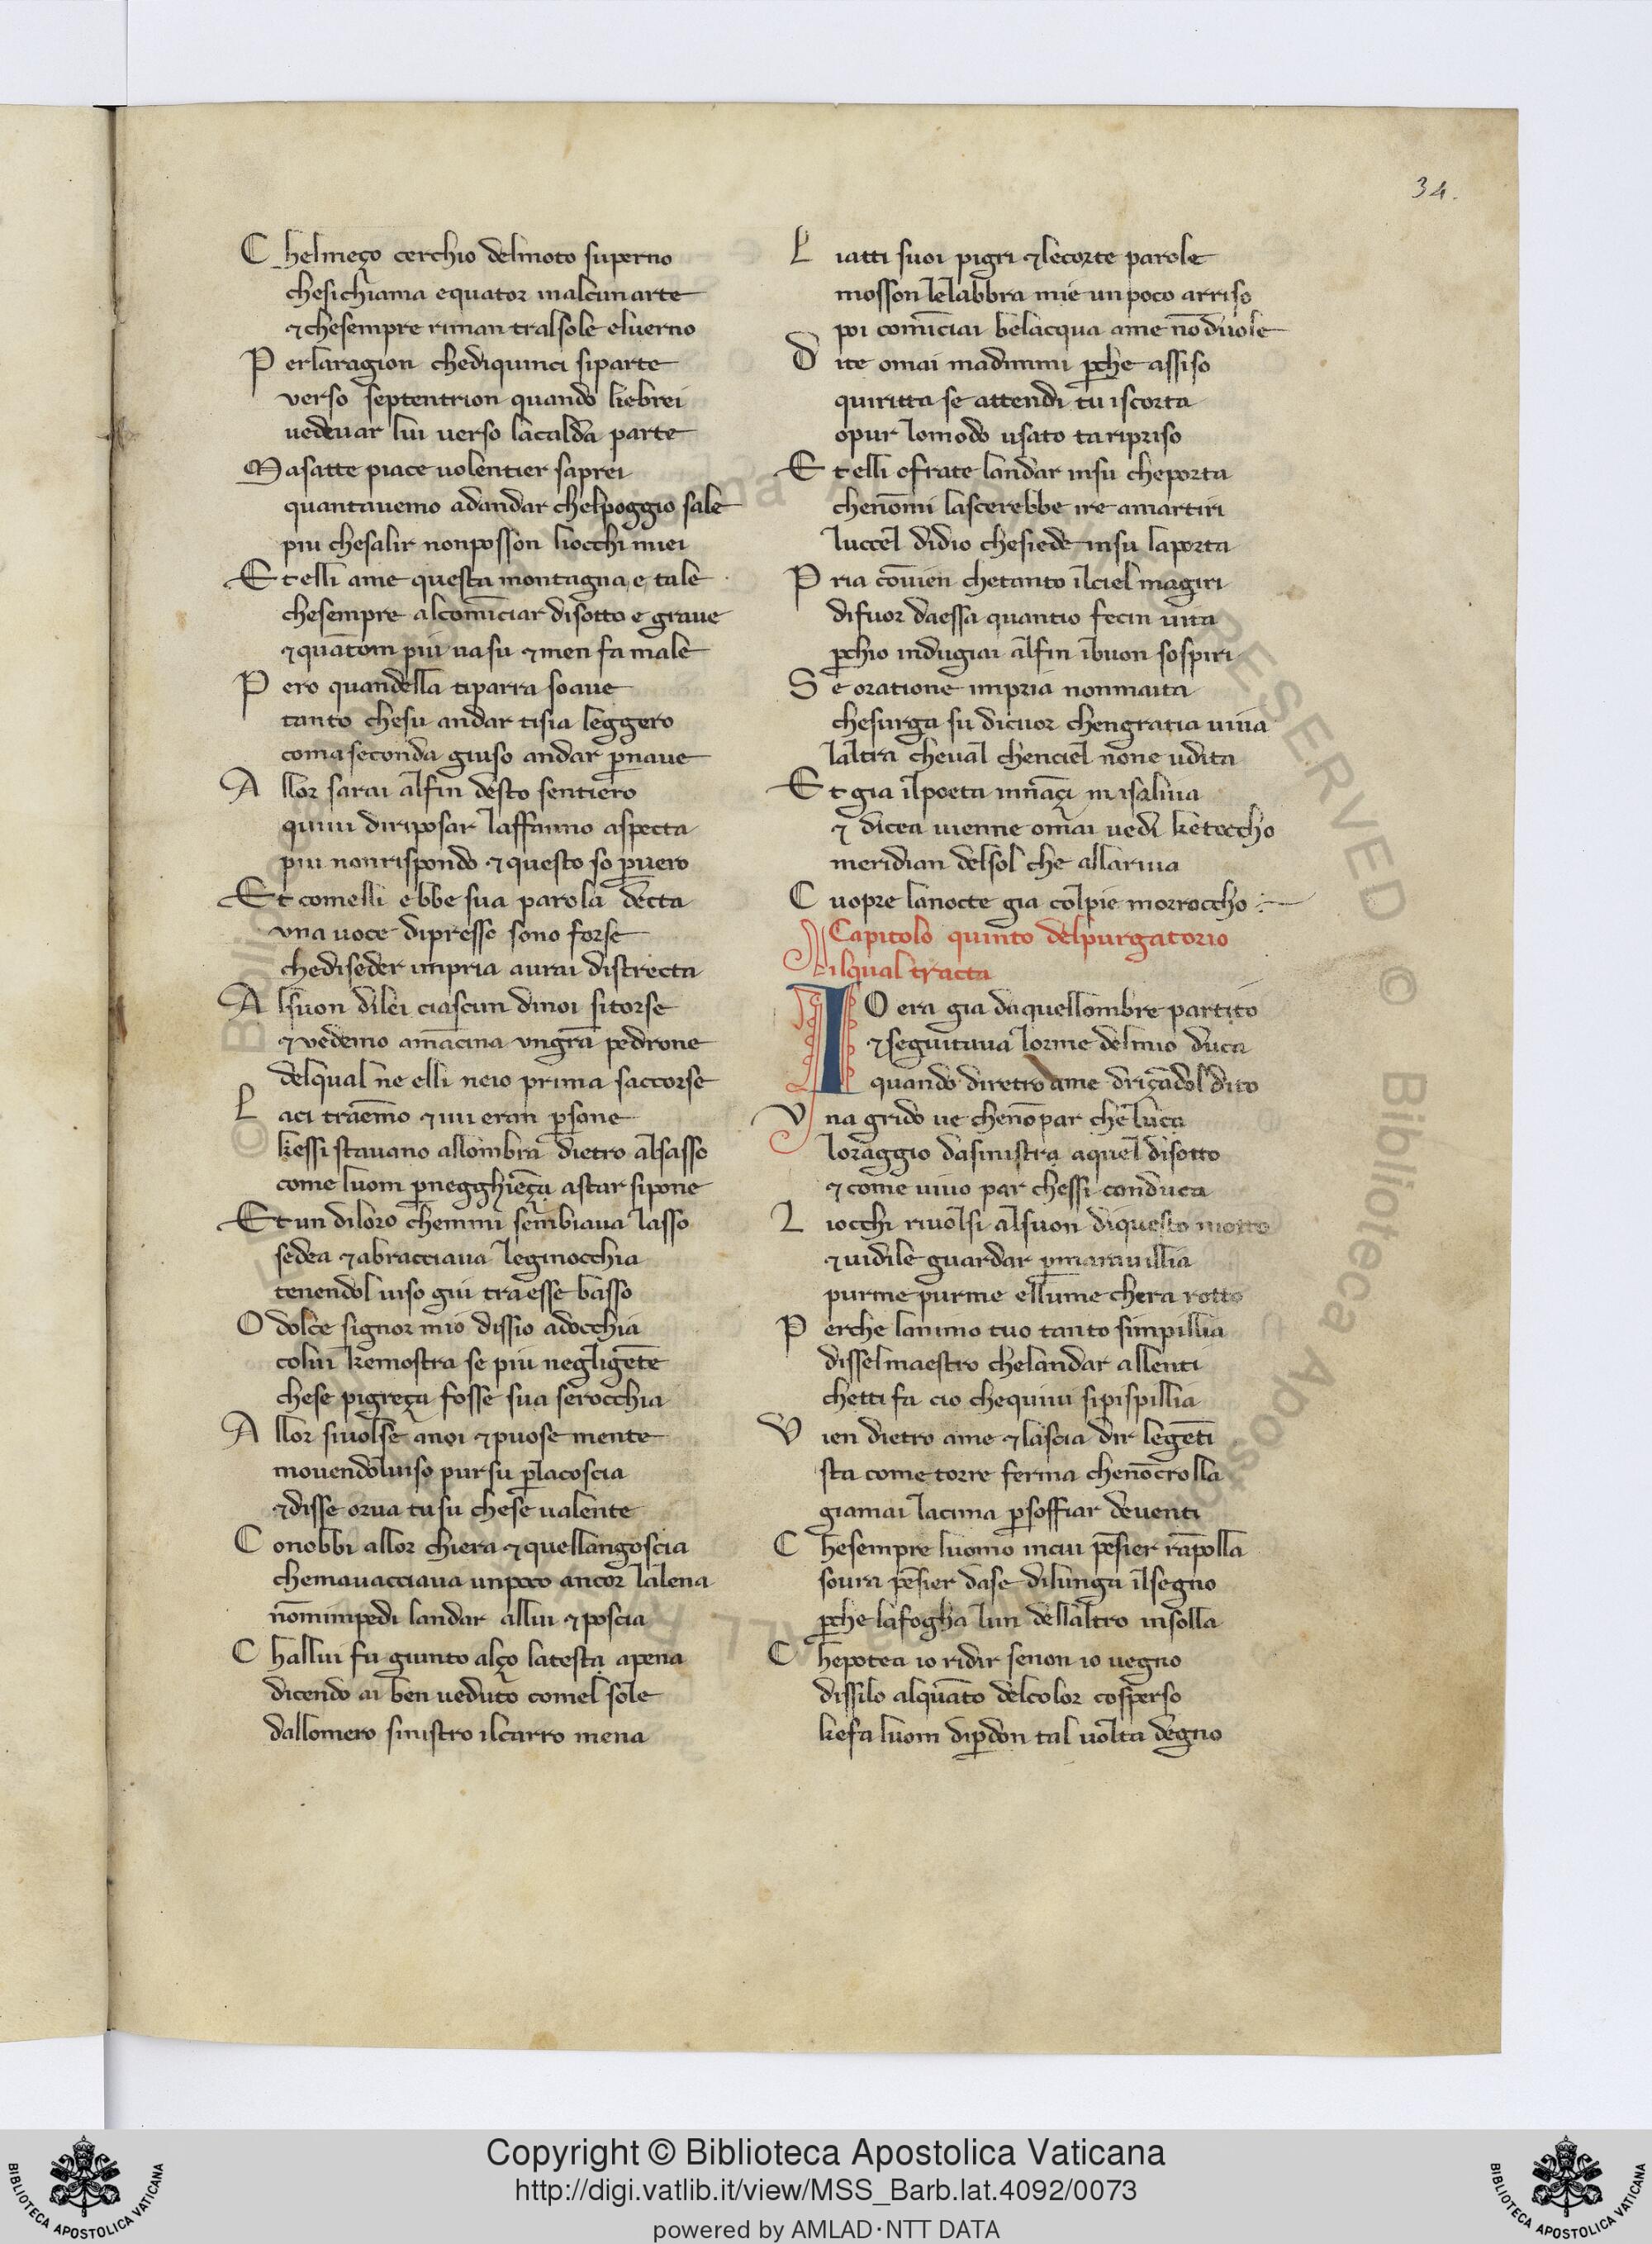 34.
C helmeço cerchio delmoto superno
chesichiama equator inalcunarte
⁊ chesempre riman tralsole eluerno
P erlaragion chediquinci siparte
verso septentrion quando liebrei
uedeuar lui uerso lacalda parte
M asatte piace uolentier saprei
quantauemo adandar chelpoggio sale
piu chesalir nonposson liocchi miei
E t elli ame questa montagna e tale
chesempre alcom̄ciar disotto e graue
⁊ quātom piu uasu ⁊ men fa male
P ero quandella tiparra soaue
tanto chesu andar tisia leggero
coma seconda giuso andar p̱naue
A llor sarai alfin desto sentiero
quiui diriposar laffanno aspecta
piu nonrispondo ⁊ questo so p̱uero
E t comelli ebbe sua parola decta
vna uoce dipresse sono forse
chediseder impria aurai distrecta
A lsuon dilei ciascun dinoi sitorse
⁊ vedemo amācina vngrā pedrone
delqual ne elli neio prima saccorse
L aci traem̄o ⁊ iui eran p̱sone
kessi stauano allombra dietro alsasso
come luom p̱negghiēça astar sipone
E t un diloro chemmi sembiaua lasso
sedea ⁊ abracciaua leginocchia
tenendol uiso giu traesse basso
O dolce signor mio dissio adocchia
colui kemostra se piu negligēte
chese pigreça fosse sua serocchia
A llor siuolse anoi ⁊ puose mente
mouendoluiso pursu p̱lacoscia
⁊ disse orua tusu chese ualente
C onobbi allor chiera ⁊ quellangoscia
chemauacciaua unpoco ancor lalena
nōmimpedi landar allui ⁊ poscia
C hallui fu giunto alço latesta apena
dicendo ai ben ueduto comel sole
dallomero sinistro ilcarro mena
L iatti suoi pigri ⁊ lecorte parole
mosson lelabbra mie unpoco arriso
poi com̄ciai belacqua ame nō duole
D ite omai madimmi p̱che assiso
quiritta se attendi tu iscorta
opur lomodo usato taripriso
E t elli ofrate landar insu cheporta
chenōmi lascerebbe ire amartiri
luccel didio chesiede insu laporta
P ria cōuien chetanto ilciel magiri
difuor daessa quantio fecin uita
p̱chio indugiai alfin ibuon sospiri
S e oratione impria nonmaita
chesurga su dicuor chengratia uiua
laltra cheual chenciel none udita
E t gia ilpoeta innāçi misaliua
⁊ dicea uienne omai uedi ketoccho
meridian delsol che allariua
C uopre lanocte gia colpie morroccho :-
Capitolo quinto delpurgatorio
Nilqual tracta
IO era gia daquellombre partito
⁊ seguitaua lorme delmio duca
quando diretro ame driçādol dito
V na grido ue chenōpar che luca
loraggio dasinistra aquel disotto
⁊ come uiuo par chessi conduca
L iocchi riuolsi alsuon diquesto motto
⁊ uidile guardar p̱marauillia
purme purme ellume chera rotto
P erche lanimo tuo tanto simpillia
disselmaestro chelandar allenti
chetti fa cio chequiui sipispillia
V ien dietro ame ⁊ lascia dir legēti
sta come torre ferma chenōcrolla
giamai lacima p̱soffiar deuenti
C hesempre luomo incui pēsier rāpolla
soura pēsier dase dilunga ilsegno
p̱che lafogha lun dellaltro insolla
C hepotea io ridir senon io uegno
dissilo alquāto delcolor cosp̱erso
kefa luom dip̱don tal uolta degno
© Biblioteca Apostolica Vaticana ALL RIGHTS RESERVED © Biblioteca Apostolica
Copyright © Biblioteca Apostolica Vaticana
http://digi.vatlib.it/view/MSS_Barb.lat.4092/0073
powered by AMLAD·NTT DATA
BIBLIOTECA APOSTOLICA VATICANA
BIBLIOTECA APOSTOLICA VATICANA